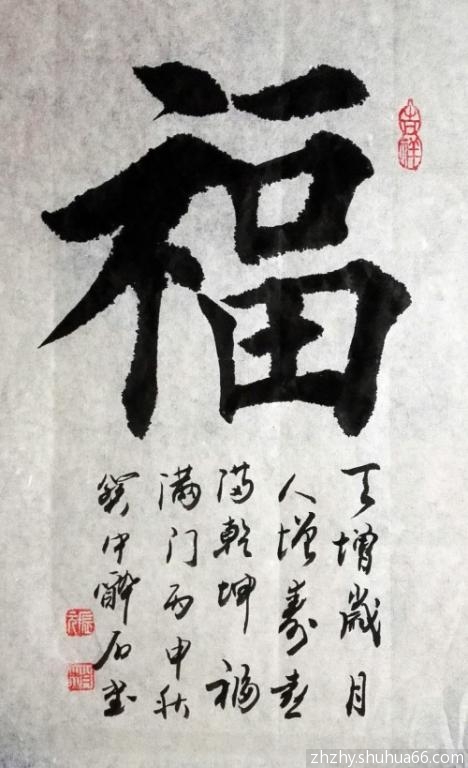 福
吉祥
天增歲月
人增寿春
满乾坤福
满门丙申秋
醉石书
zhzhy.shuhua66.com